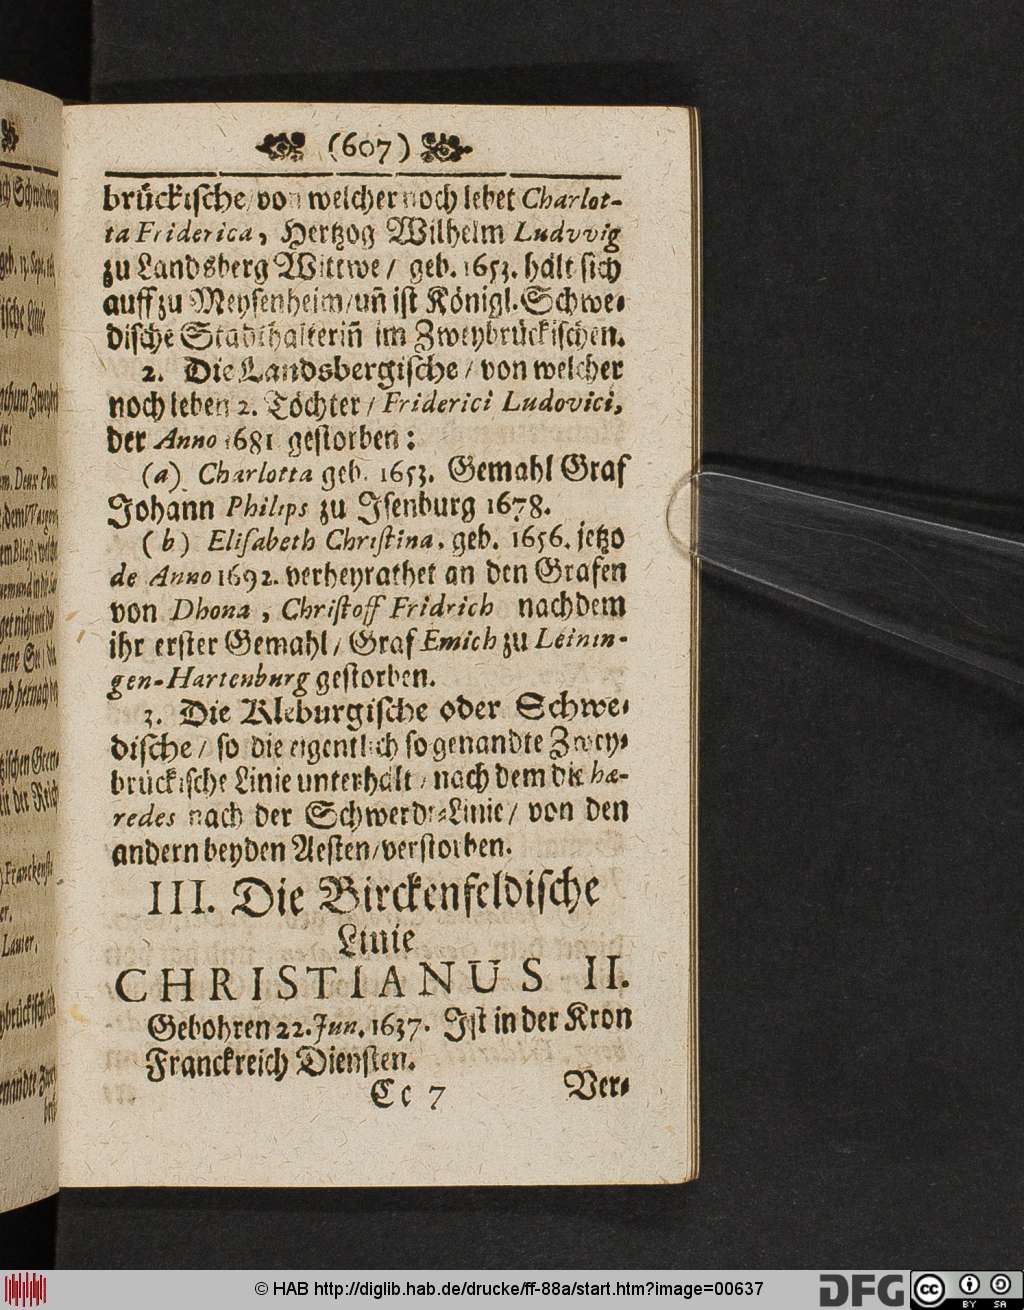 (607)
brückische/von welcher noch lebet Charlot-
ta Friderica, Hertzog Wilhelm Ludvvig
zu Landsberg Wittwe / geb. 1653. hält sich
auff zu Meysenheim/un̄ ist Königl. Schwe-
dische Stadthalterin̄ im Zweybrückischen.
2. Die Landsbergische / von welcher
noch leben 2. Töchter / Friderici Ludovici,
der Anno 1681 gestorben:
(a) Charlotta geb. 1653. Gemahl Graf
Johann Philips zu Isenburg 1678.
(b) Elisabeth Christina, geb. 1656. jetzo
de Anno 1692. verheyrathet an den Grafen
von Dhona, Christoff Fridrich nachdem
ihr erster Gemahl / Graf Emich zu Leinin-
gen-Hartenburg gestorben.
3. Die Kleburgische oder Schwe-
dische / so die eigentlich so genandte Zwey-
brückische Linie unterhält / nach dem die hæ-
redes nach der Schwerdt-Linie / von den
andern beyden Aesten/verstorben.
III. Die Birckenfeldische
Linie
CHRISTIANUS II.
Gebohren 22. Jun. 1637. Ist in der Kron
Franckreich Diensten.
Cc 7 Ver-
© HAB http://diglib.hab.de/drucke/ff-88a/start.htm?image=00637
DFG
cc BY SA